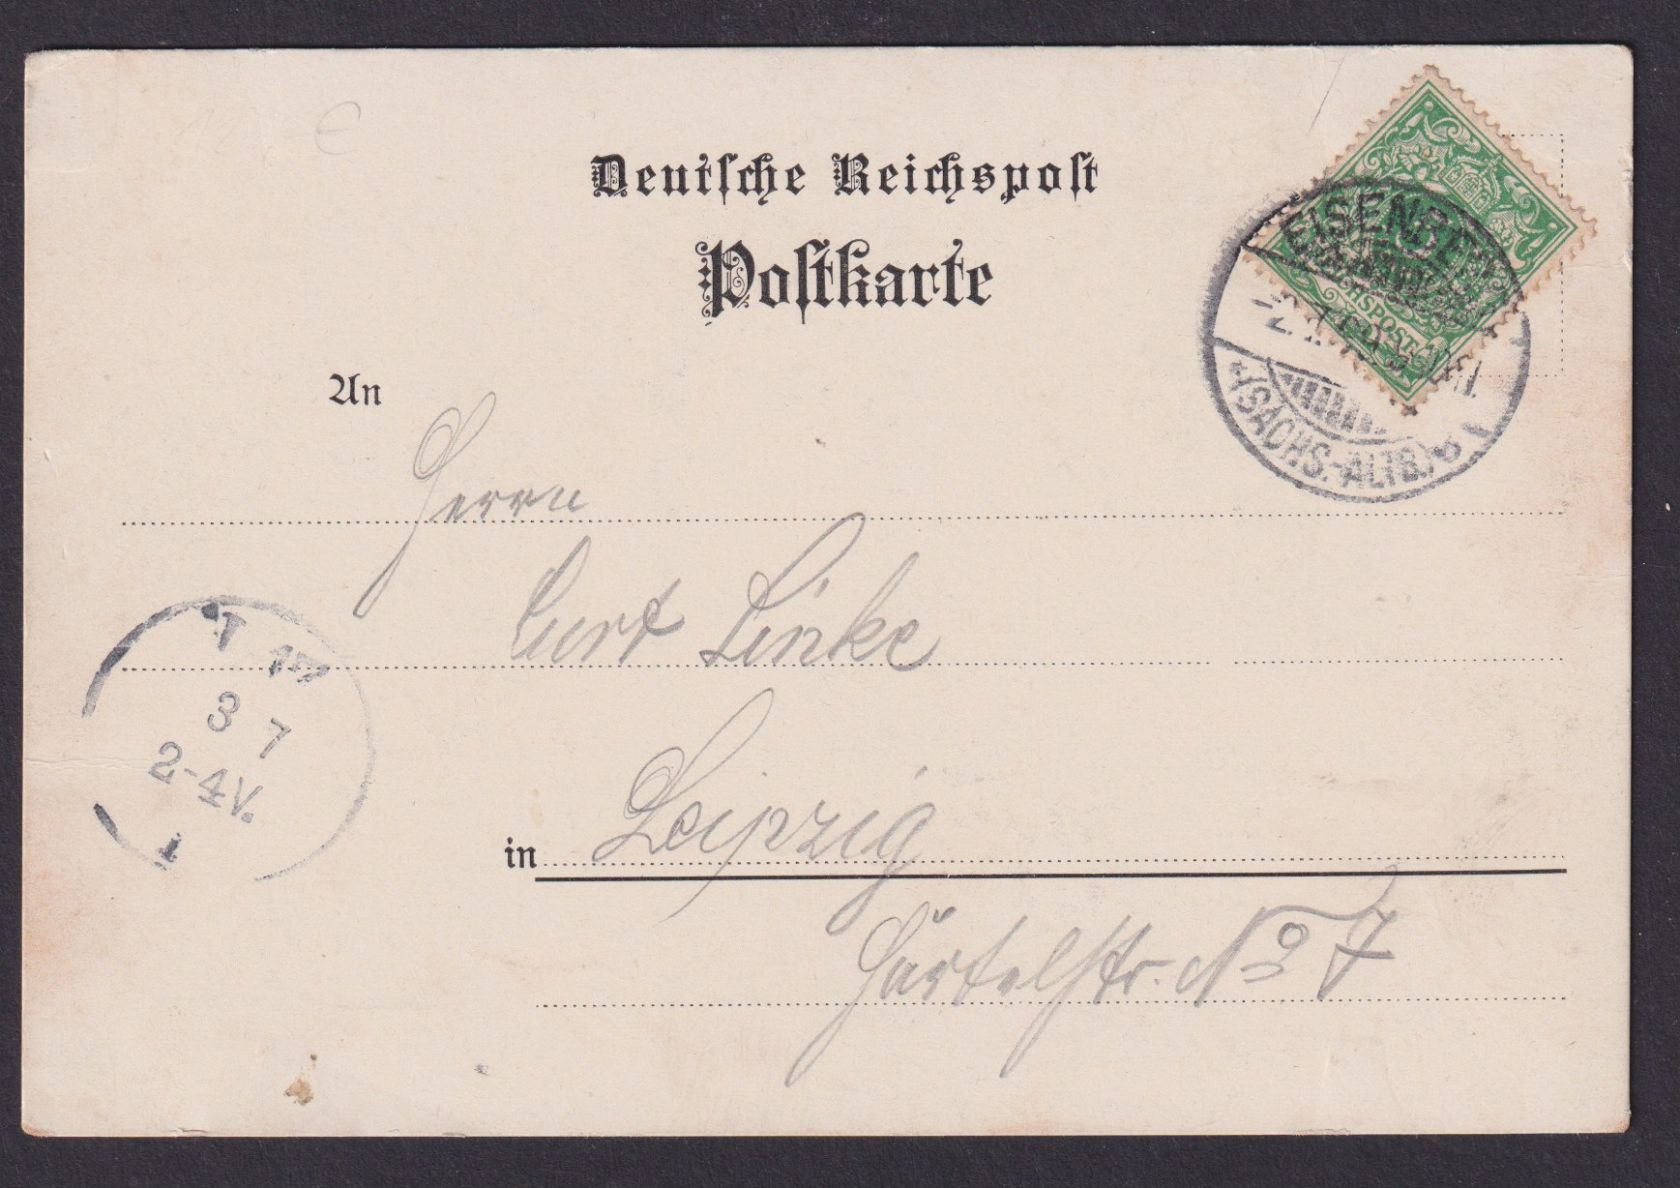 Deutsche Reichspost
Postkarte
An
Herrn
Curt Linke
in Leipzig
Härtelstr. No 7
EISENBERG
(SACHS.-ALTB.)
REICHSPOST
3 7
2-4V.
1